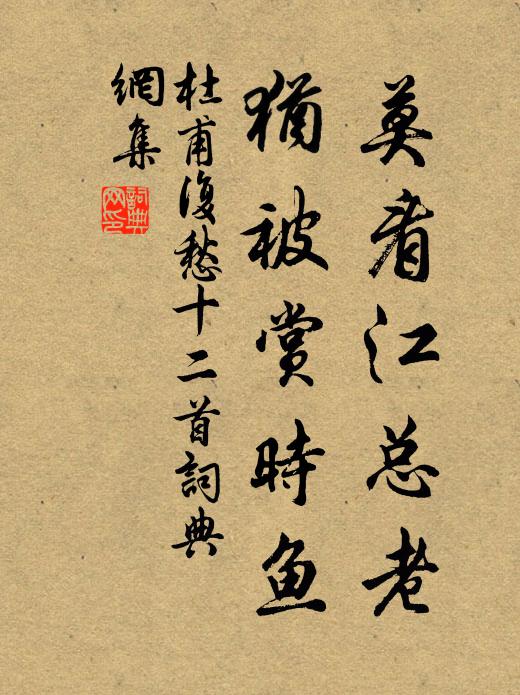 莫看江总老
犹被赏时鱼
杜甫復愁十二首詞典
網集
詞典網印